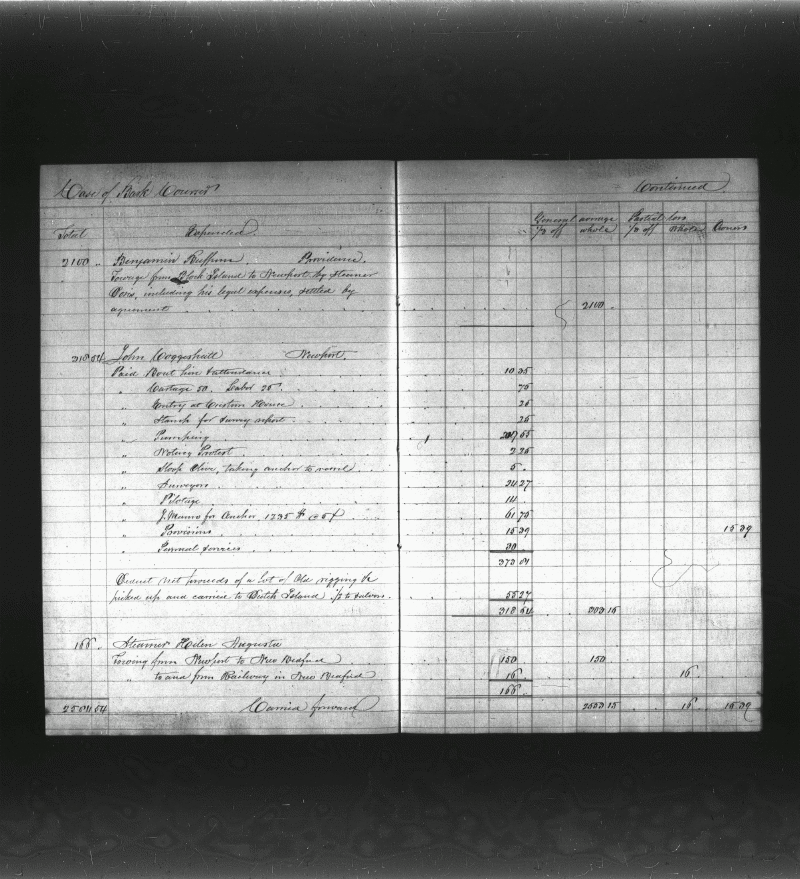 Case of Bark Courier Continued
General average Partial loss
Total Expended. 1/3 off whole 1/3 off whole Owners
2100 .. Benjamin Buffum Providence.
Towage from Block Island to Newport by steamer
including his legal expenses, settled by
agreement 2100 .
318 54 John Coggeshall Newport.
Paid Boat hire & attendance 10 35
" Cartage 50. Labor 25 75
" Entry at Custom House 25
" Stamp for survey report 25
" Pumping 55
" Noting Protest 2 25
" Sloop Olive, taking anchor to vessel 5 .
" Surveyors 24 27
" Pilotage 14
" J. Munro for Anchor, 1235 # @ 5 ¢ 61 75
" Provisions 15 39 15 39
" Personal services 30
373 81
Deduct net proceeds of a lot of Old rigging &c
picked up and carried to Dutch Island. 1/2 to salvors. 55 27
318 54 303 15
166 .. Steamer Helen Augusta
Towing from Newport to New Bedford 150 150
" to and from Railway in New Bedford 16 16
166
2584 54 Carried forward 2553 15 16 15 39